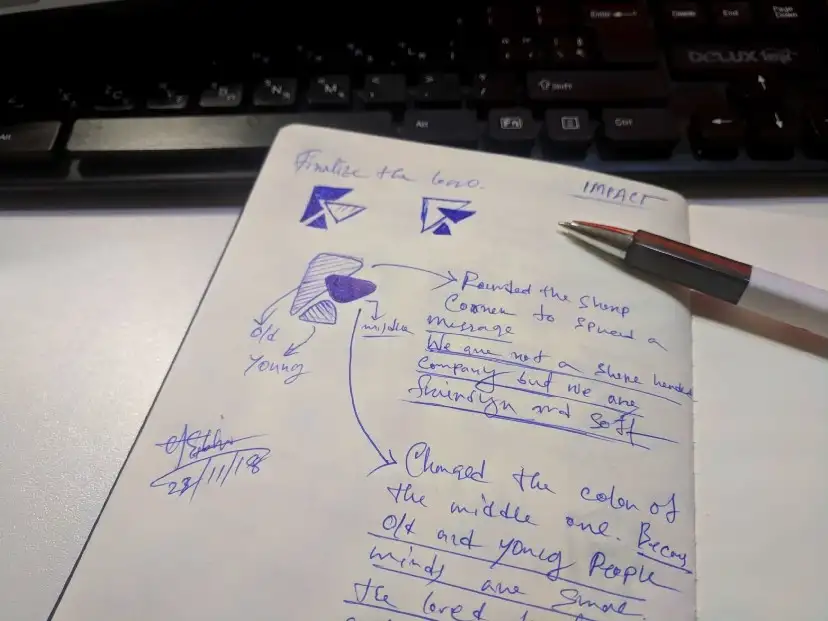 Finalize the logo.
IMPACT
Rounded the sharp
Corner to spread a
message
We are not a sharp headed
Company but we are
friendlyn and soft
Old
middle
Young
23/11/18
Changed the color of
the middle one. Becaus
Old and young People
minds are
the
Enter
Delete
End
Page
Down
DELUX
Shift
Alt
Fn
Ctrl
Alt
N
M